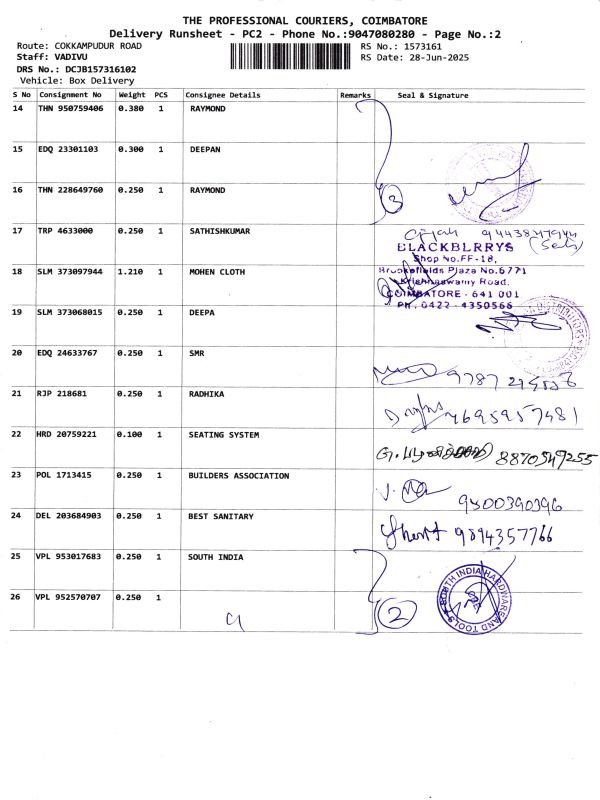 THE PROFESSIONAL COURIERS, COIMBATORE
Delivery Runsheet - PC2 - Phone No.:9047080280 - Page No.:2
Route: COKKAMPUDUR ROAD
RS No.: 1573161
Staff: VADIVU
RS Date: 28-Jun-2025
DRS No.: DCJB157316102
Vehicle: Box Delivery
S No Consignment No Weight PCS Consignee Details Remarks Seal & Signature
14 THN 950759406 0.380 1 RAYMOND
15 EDQ 23301103 0.300 1 DEEPAN
16 THN 228649760 0.250 1 RAYMOND
3
17 TRP 4633000 0.250 1 SATHISHKUMAR
BLACKBERRYS
Shop No.FF-18,
18 SLM 373097944 1.210 1 MOHEN CLOTH
Brookefields Plaza No.6771
Krishnaswamy Road,
COIMBATORE - 641 001
PH : 0422 - 4350566
19 SLM 373068015 0.250 1 DEEPA
20 EDQ 24633767 0.250 1 SMR
21 RJP 218681 0.250 1 RADHIKA
7695957481
22 HRD 20759221 0.100 1 SEATING SYSTEM
8870549255
23 POL 1713415 0.250 1 BUILDERS ASSOCIATION
9400390396
24 DEL 203684903 0.250 1 BEST SANITARY
9894357766
25 VPL 953017683 0.250 1 SOUTH INDIA
SOUTH INDIA HARDWARE AND TOOLS
26 VPL 952570707 0.250 1
2